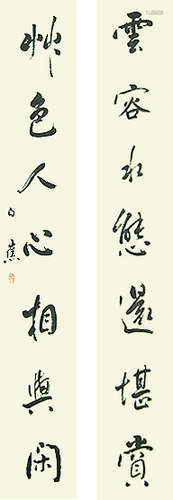 雲容水態還堪賞
艸色人心相與閑
白蕉